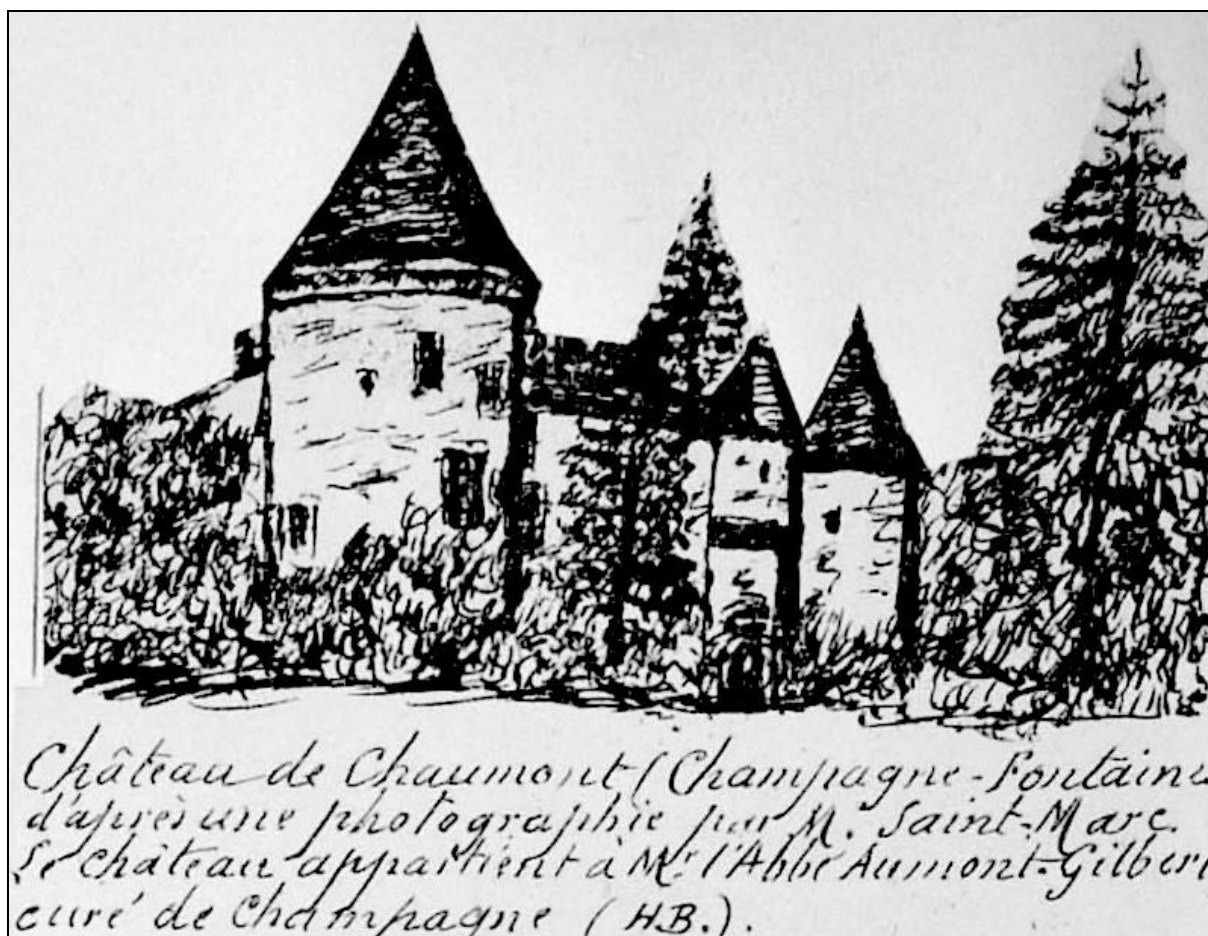 Château de Chaumont (Champagne-Fontaine
d'après une photographie par M. Saint-Marc.
Le château appartient à Mr. l'Abbé Aumont-Gilbert,
curé de Champagne (H.B.).